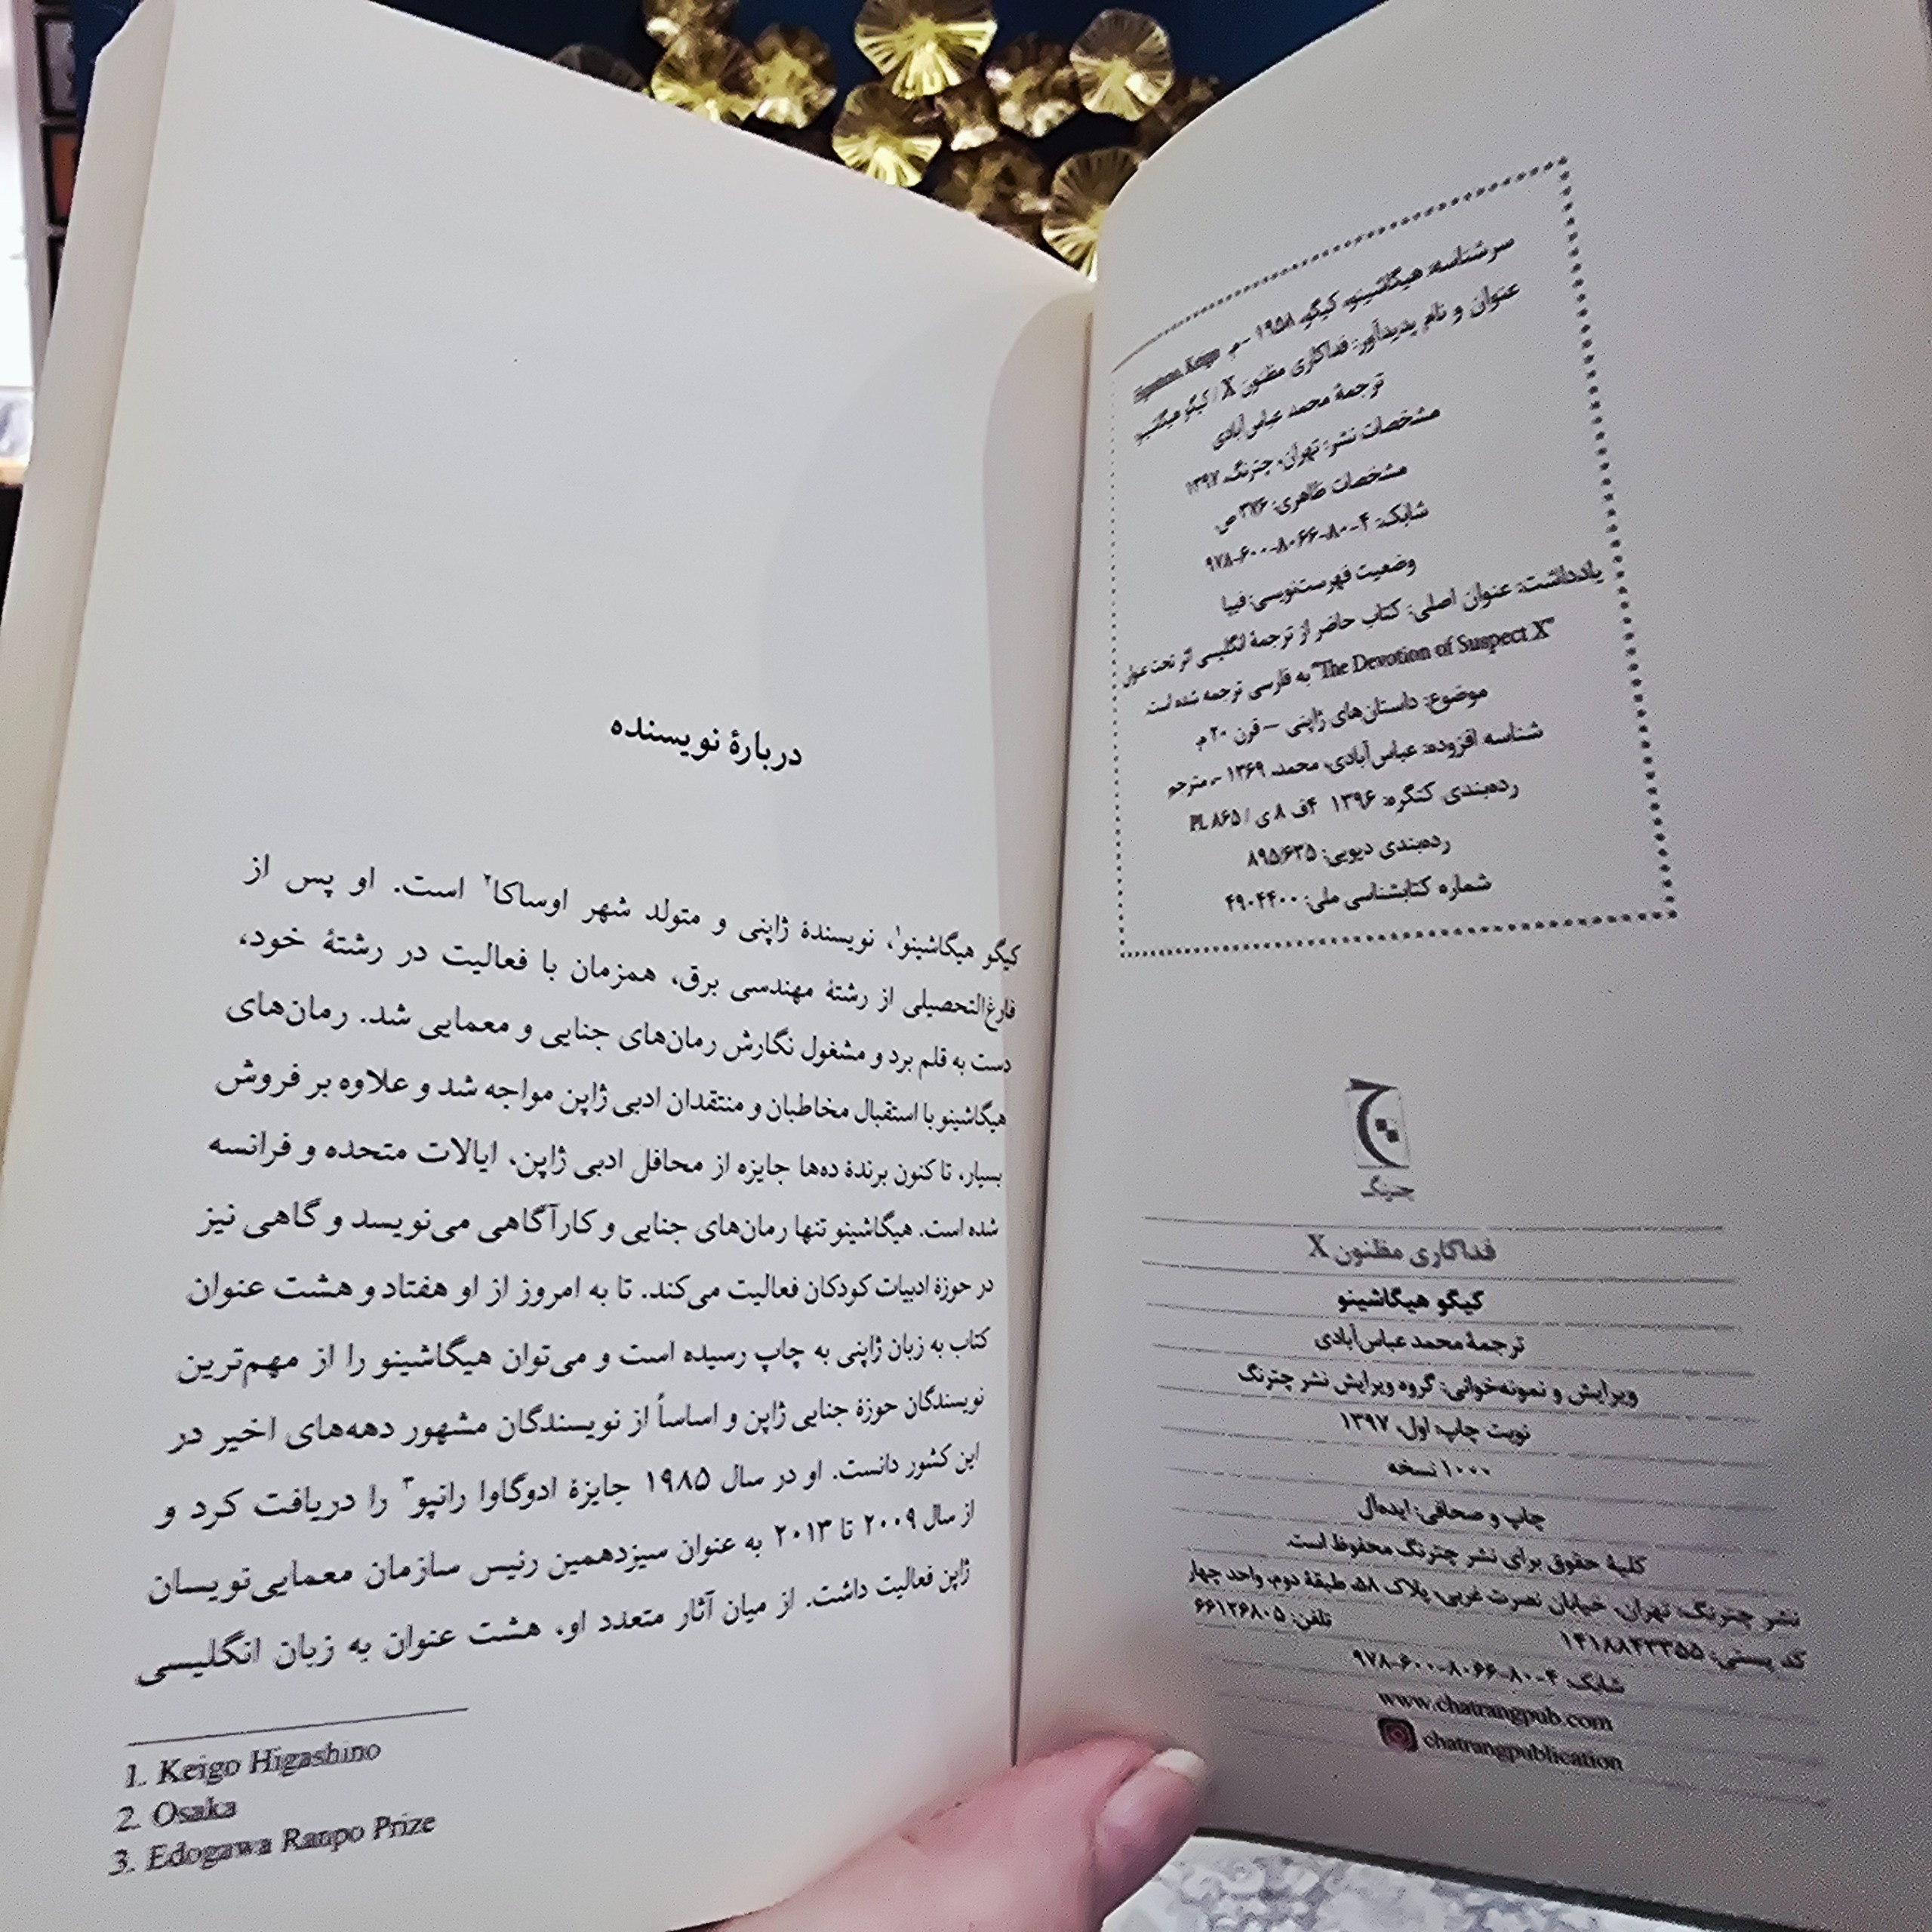 سرشناسه: هیگاشینو، کیگو، ۱۹۵۸ -م. Higashino, Keigo
عنوان و نام پدیدآور: فداکاری مظنون X / کیگو هیگاشینو
ترجمهٔ محمد عباس‌آبادی
مشخصات نشر: تهران، چترنگ، ۱۳۹۷
مشخصات ظاهری: ۳۷۶ ص.
شابک: ۴-۸۰-۸۰۶۶-۶۰۰-۹۷۸
وضعیت فهرست‌نویسی: فیپا
یادداشت: عنوان اصلی: کتاب حاضر از ترجمهٔ انگلیسی اثر تحت عنوان
"The Devotion of Suspect X" به فارسی ترجمه شده است.
موضوع: داستان‌های ژاپنی — قرن ۲۰ م.
شناسه افزوده: عباس‌آبادی، محمد، ۱۳۶۹ -، مترجم
رده‌بندی کنگره: ۱۳۹۶ ۴ف ۸ی / PL ۸۶۵
رده‌بندی دیویی: ۸۹۵/۶۳۵
شماره کتابشناسی ملی: ۴۹۰۴۴۰۰
چترنگ
فداکاری مظنون X
کیگو هیگاشینو
ترجمهٔ محمد عباس‌آبادی
ویرایش و نمونه‌خوانی: گروه ویرایش نشر چترنگ
نوبت چاپ: اول، ۱۳۹۷
۱۰۰۰ نسخه
چاپ و صحافی: ایده‌آل
کلیهٔ حقوق برای نشر چترنگ محفوظ است.
نشر چترنگ: تهران، خیابان نصرت غربی، پلاک ۵۸، طبقهٔ دوم، واحد چهار
کد پستی: ۱۴۱۸۸۴۳۳۵۵ تلفن: ۶۶۱۲۶۸۰۵
شابک: ۴-۸۰-۸۰۶۶-۶۰۰-۹۷۸
www.chatrangpub.com
chatrangpublication
دربارهٔ نویسنده
کیگو هیگاشینو۱، نویسندهٔ ژاپنی و متولد شهر اوساکا۲ است. او پس از
فارغ‌التحصیلی از رشتهٔ مهندسی برق، همزمان با فعالیت در رشتهٔ خود،
دست به قلم برد و مشغول نگارش رمان‌های جنایی و معمایی شد. رمان‌های
هیگاشینو با استقبال مخاطبان و منتقدان ادبی ژاپن مواجه شد و علاوه بر فروش
بسیار، تا کنون برندهٔ ده‌ها جایزه از محافل ادبی ژاپن، ایالات متحده و فرانسه
شده است. هیگاشینو تنها رمان‌های جنایی و کارآگاهی می‌نویسد و گاهی نیز
در حوزهٔ ادبیات کودکان فعالیت می‌کند. تا به امروز از او هفتاد و هشت عنوان
کتاب به زبان ژاپنی به چاپ رسیده است و می‌توان هیگاشینو را از مهم‌ترین
نویسندگان حوزهٔ جنایی ژاپن و اساساً از نویسندگان مشهور دهه‌های اخیر در
این کشور دانست. او در سال ۱۹۸۵ جایزهٔ ادوگاوا رانپو۳ را دریافت کرد و
از سال ۲۰۰۹ تا ۲۰۱۳ به عنوان سیزدهمین رئیس سازمان معمایی‌نویسان
ژاپن فعالیت داشت. از میان آثار متعدد او، هشت عنوان به زبان انگلیسی
1. Keigo Higashino
2. Osaka
3. Edogawa Ranpo Prize